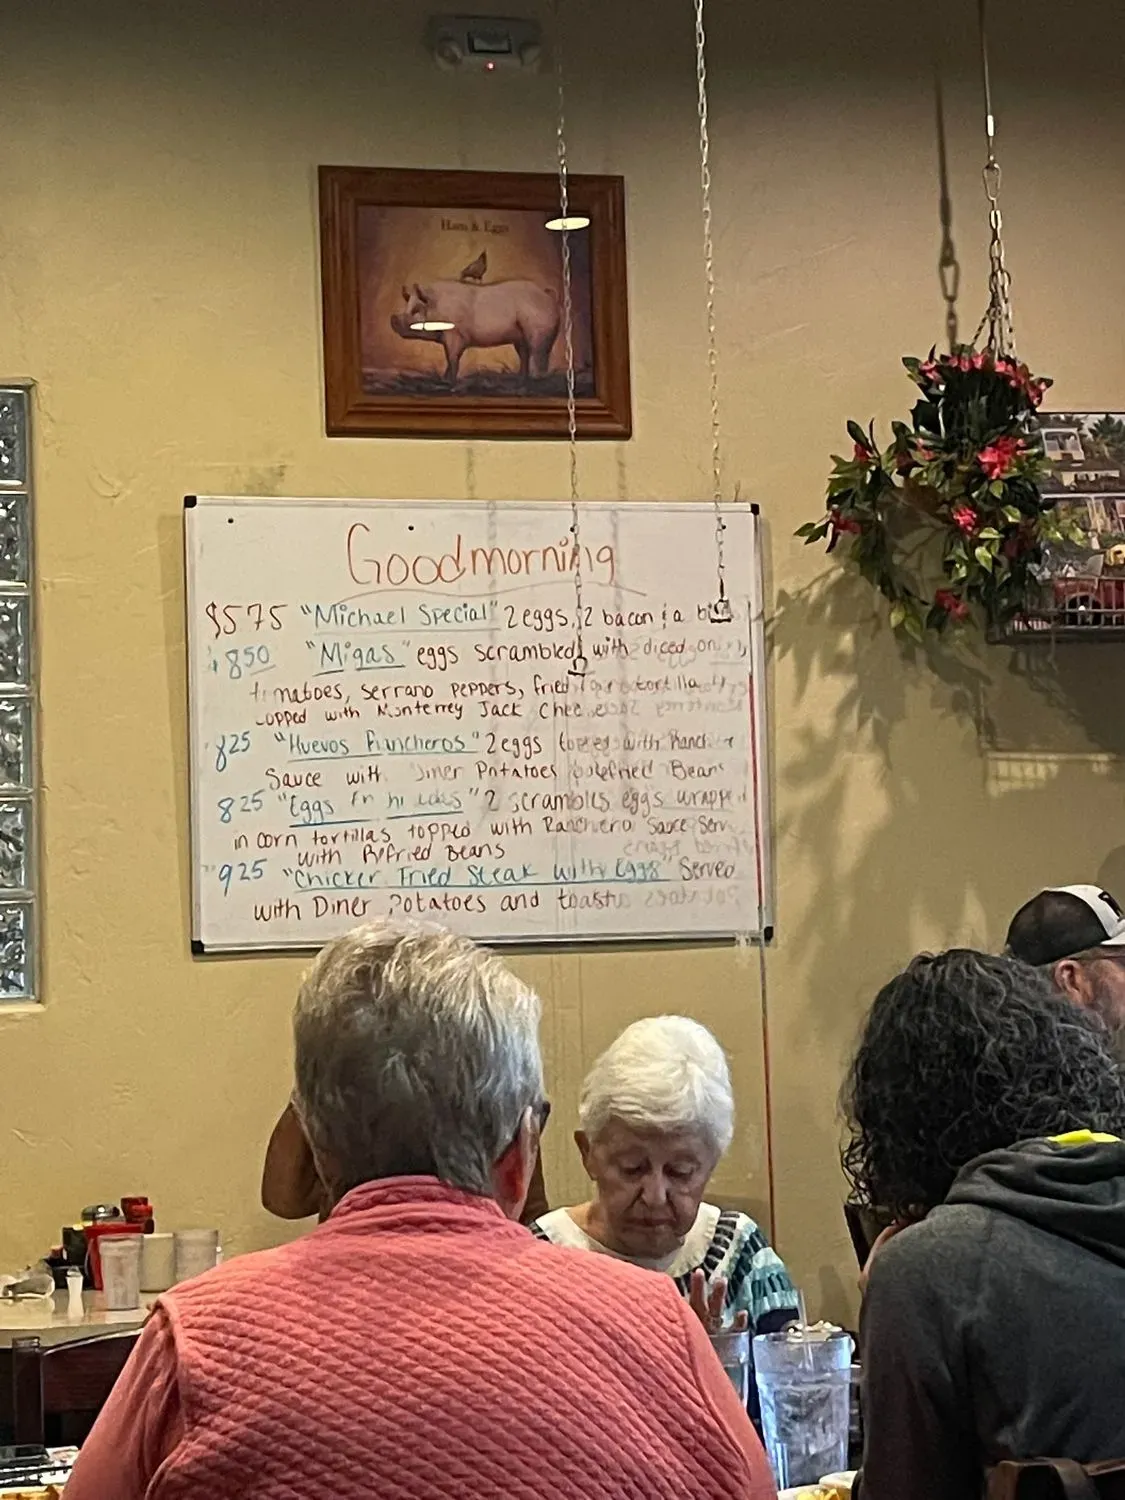 Ham & Eggs
Goodmorning
$575 "Michael Special" 2 eggs, 2 bacon & a
850 "Migas" eggs scrambled with diced
tomatoes, serrano peppers, fried tortilla
topped with Monterrey Jack
825 "Huevos Rancheros" 2 eggs topped with
Sauce with Diner Potatoes Refried Beans
825 "Eggs 2 scrambles eggs wrapped
in corn tortillas topped with Ranchero Sauce
with Refried Beans
925 "Chicken Fried Steak with Eggs" Served
with Diner Potatoes and toast